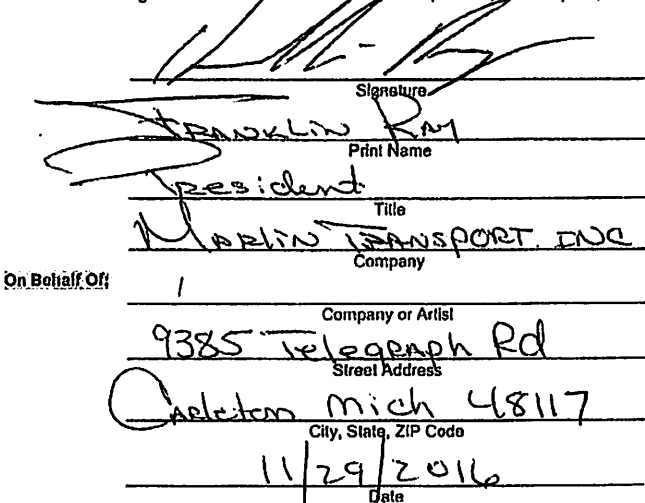 Signature
Franklin Ray
Print Name
President
Title
Marlin Transport. Inc
Company
On Behalf Of:
Company or Artist
9385 Telegraph Rd
Street Address
Carleton Mich 48117
City, State, ZIP Code
11/29/2016
Date